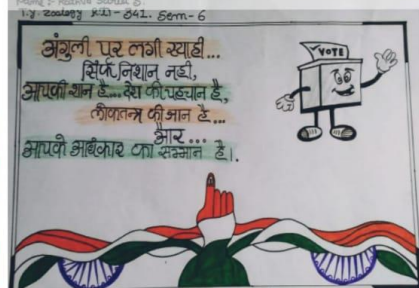 T.Y. Zoology
Sem-6
अंगुली पर लगी स्याही...
सिर्फ निशान नही,
आपकी शान है... देश की पहचान है,
लोकतन्त्र की आन है...
और...
आपके अधिकार का सम्मान है।.
VOTE